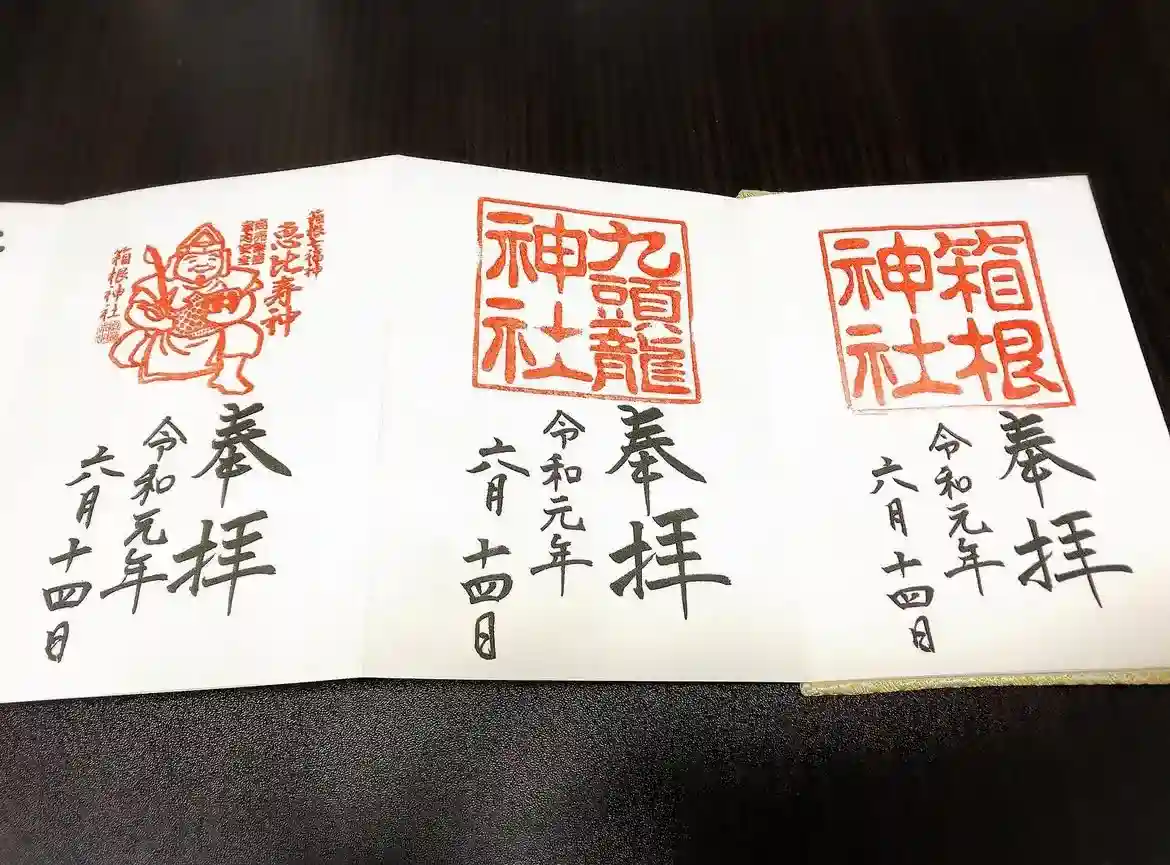 箱根
神社
奉拝
令和元年
六月十四日
九頭龍
神社
奉拝
令和元年
六月十四日
箱根七福神
恵比寿神
箱根神社
奉拝
令和元年
六月十四日